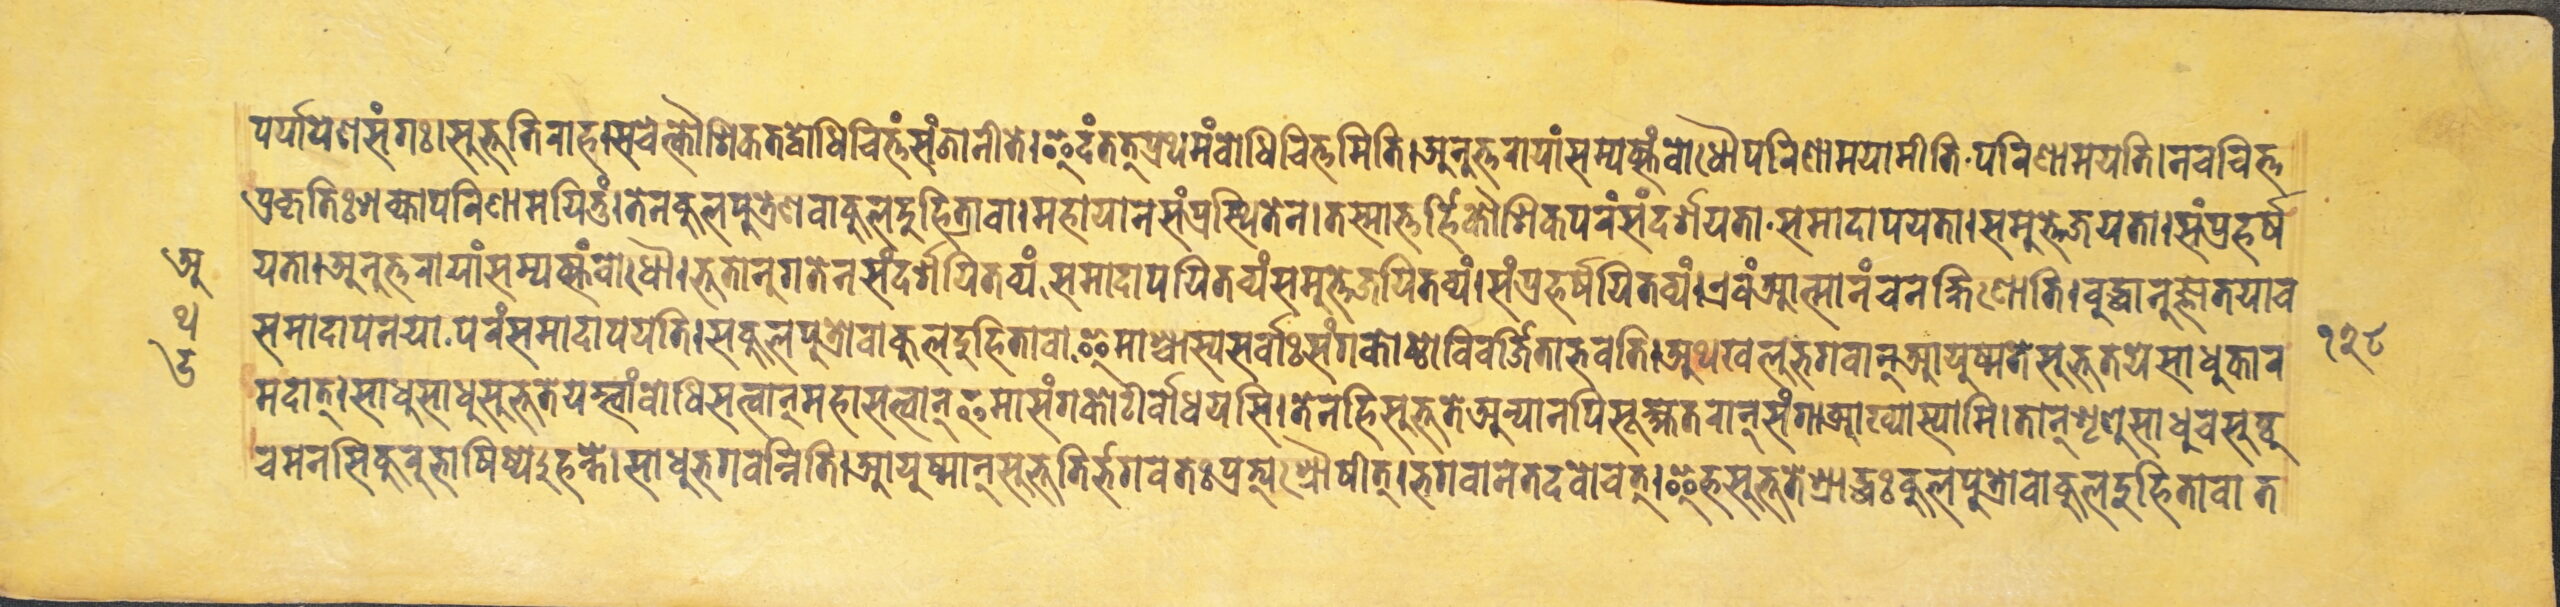 पर्यायेण संगः। सुभूतिराह। सचेत्कौशिक तद्बोधिचित्तं संजानीते। इदं तत्प्रथमं बोधिचित्तमिति। अनुत्तरायां सम्यक्संबोधौ परिणामयामीति परिणामयति। न च चित्त
प्रकृतिः शक्या परिणामयितुं। तेन कुलपुत्रेण वा कुलदुहित्रा वा। महायानसंप्रस्थितेन। तस्मात्तर्हि कौशिक परं संदर्शयता समादापयता। समुत्तेजयता। संप्रहर्ष
यता। अनुत्तरायां सम्यक्संबोधौ। भूतानुगतेन संदर्शयितव्यं समादापयितव्यं समुत्तेजयितव्यं। संप्रहर्षयितव्यं। एवं आत्मानं च न क्षिणोति। बुद्धानुज्ञातया च
समादापनया परं समादापयति। स कुलपुत्रो वा कुलदुहिता वा इमाश्चास्य सर्वाः संगकोट्यो विवर्जिता भवति। अथ खलु भगवान् आयुष्मते सुभूतये साधुकार
मदात्। साधु साधु सुभूते यस्त्वां बोधिसत्वान् महासत्वान् इमा संगकोटीर्बोधयसि। तेन हि सुभूते अन्यानपि सूक्ष्मतरान् संगा आख्यास्यामि। तान् शृणु साधु च सुष्ठु
च मनसि कुरु भाषिष्येऽहन्ते। साधु भगवन्निति। आयुष्मान् सुभूतिर्भगवतः प्रत्यश्रौषीत्। भगवानेतदवोचत्। इह सुभूते श्राद्धः कुलपुत्रो वा कुलदुहिता वा त
अ
थ
१२८